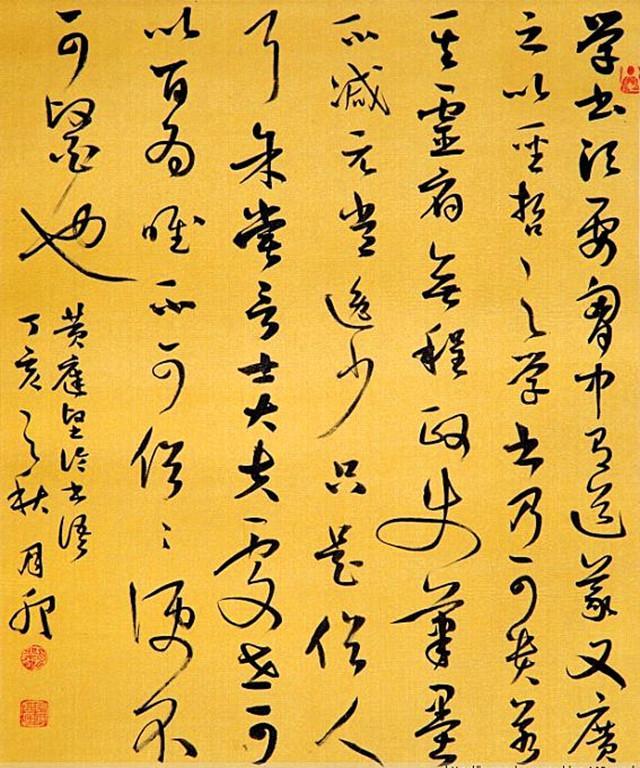 学书须要胸中有道义又广
之以圣哲之学书乃可贵若
其靈府無程政使筆墨
不减元常逸少只是俗人
耳余尝言士大夫处世可
以百为唯不可俗々便不
可医也
黄庭坚论书语
丁亥之秋月